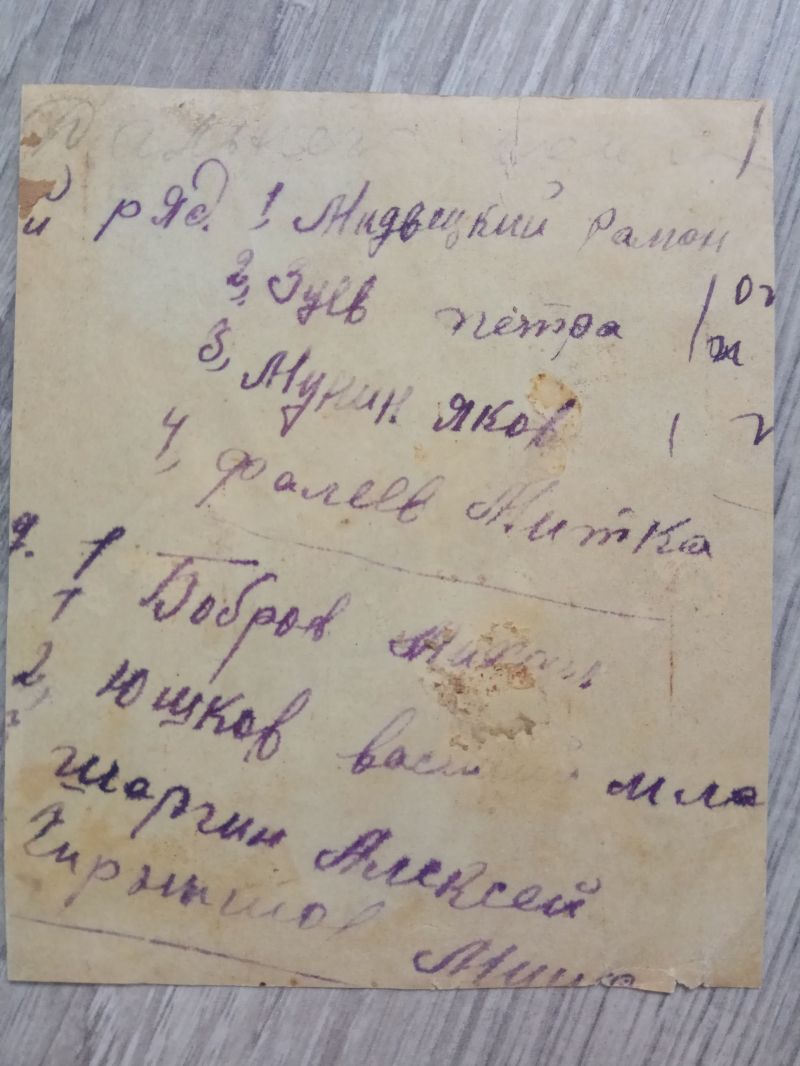 й ряд. 1, Мидвецкий Рамон
2, Зуев пётра
3, Мунин Яков
4, Фалеев Митка
д. 1
1 Бобров Михаил
2, Юшков мла
Шаргин Алексей
Чирнышов Миша